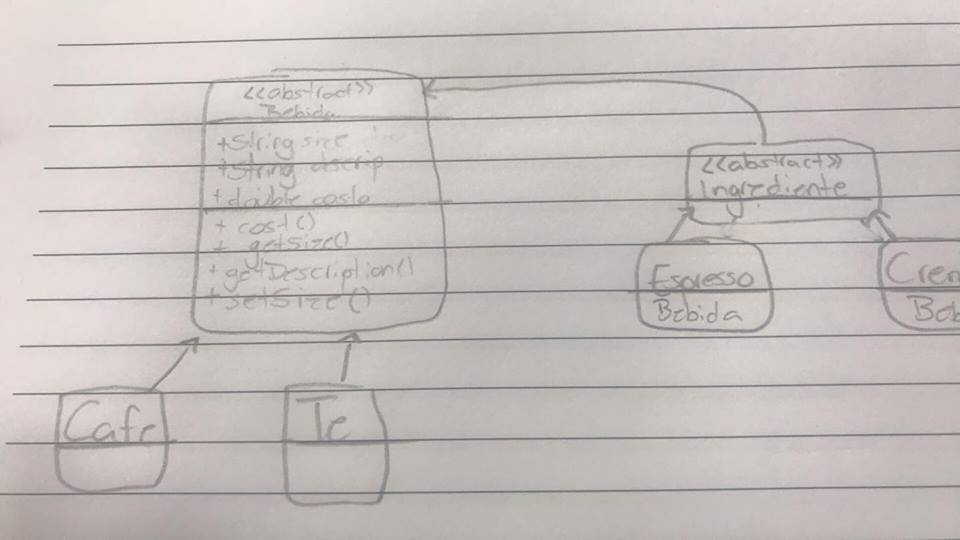 <<abstract>>
Bebida
+String size
+String descrip
+double costo
+ cost()
+ getSize()
+getDescription()
+setSize()
<<abstract>>
Ingrediente
Espresso
Bebida
Crem
Beb
Cafe
Te